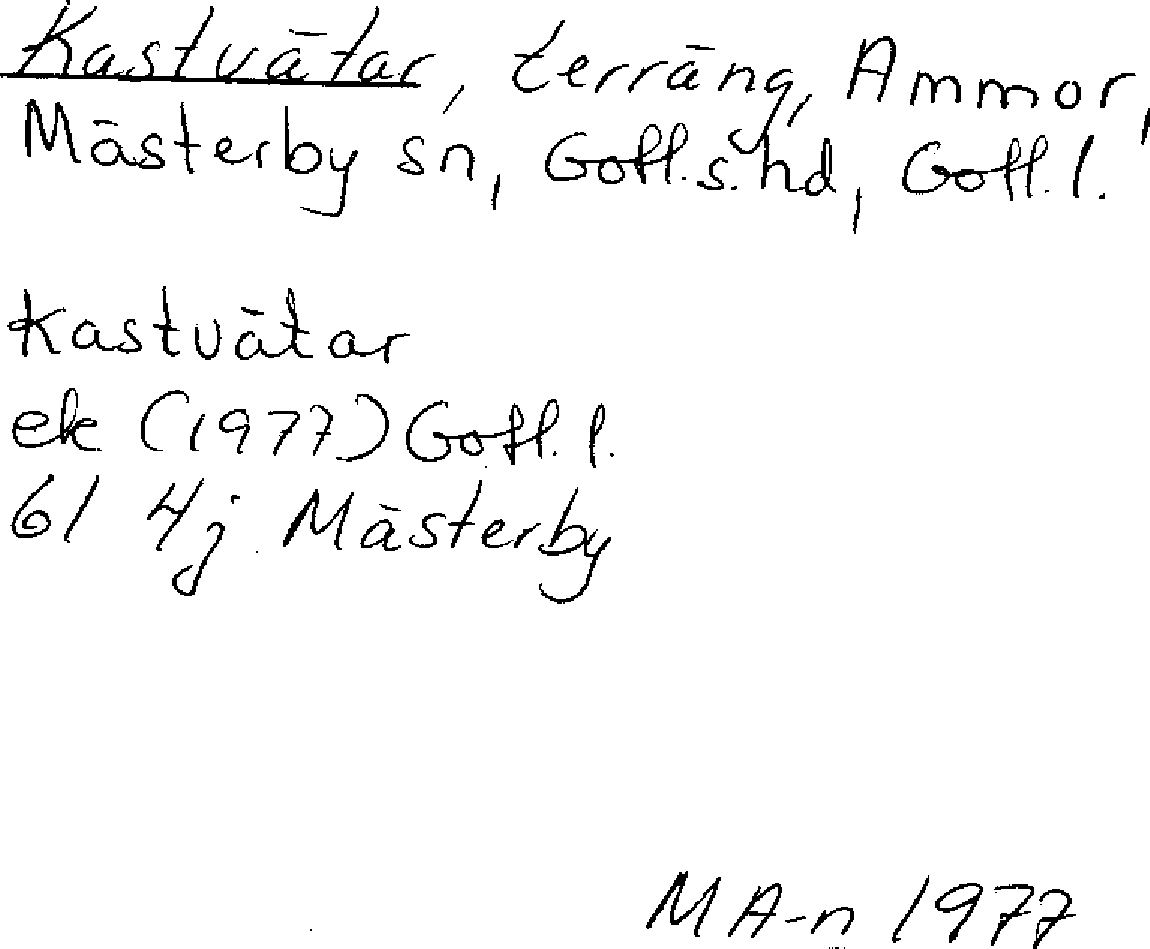 Kastvätar, terräng, Ammor,
Mästerby sn, Gotl.s. hd, Gotl. l.
Kastvätar
ek (1977) Gotl. l.
61 4j Mästerby
MA-n 1977